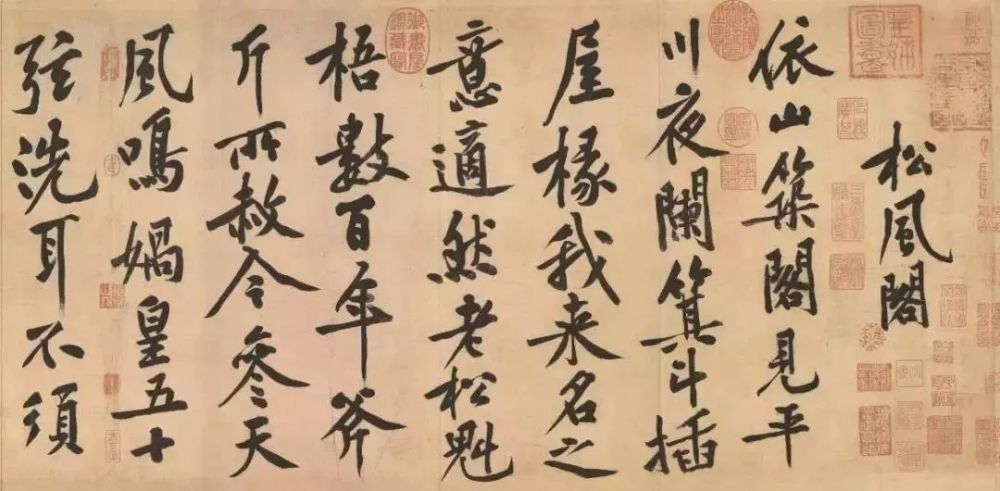 松風閣
依山築閣見平
川夜闌箕斗插
屋椽我来名之
意適然老松魁
梧數百年斧
斤所赦今參天
風鳴媧皇五十
弦洗耳不須